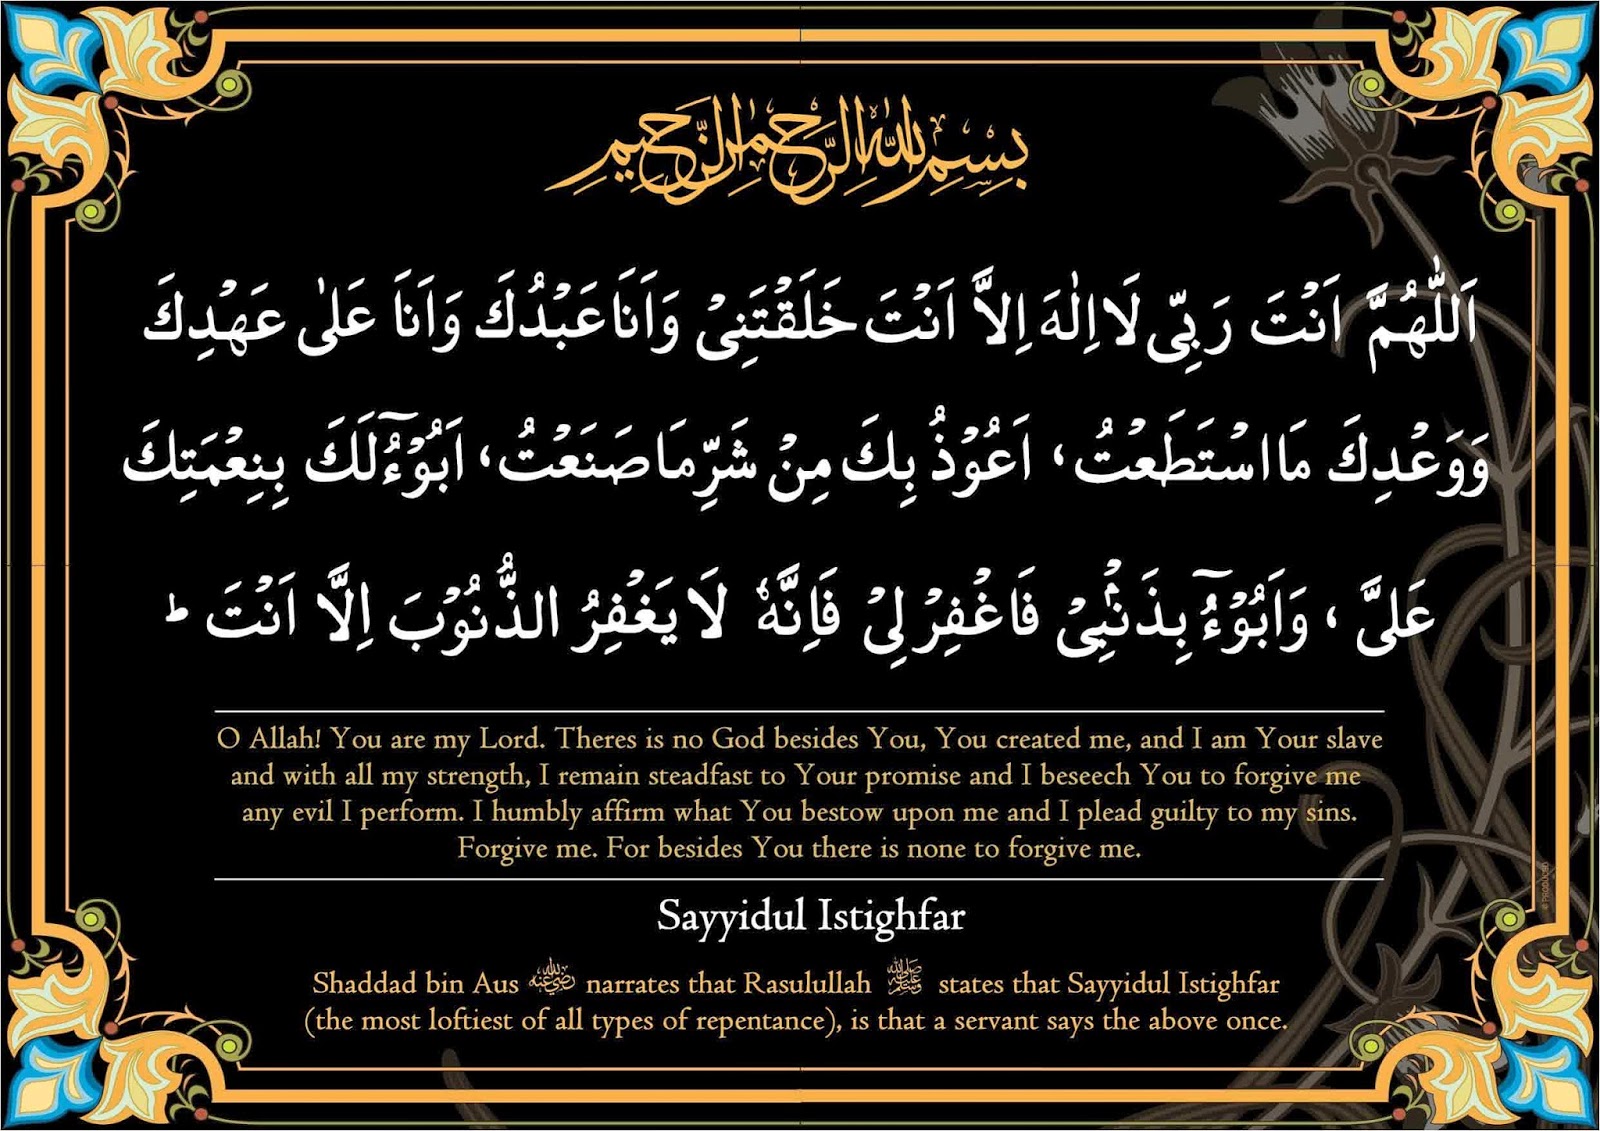 بِسْمِ اللهِ الرَّحْمٰنِ الرَّحِيْمِ
اَللّٰهُمَّ اَنْتَ رَبِّىْ لَا اِلٰهَ اِلاَّ اَنْتَ خَلَقْتَنِىْ وَاَنَا عَبْدُكَ وَاَنَا عَلٰى عَهْدِكَ
وَوَعْدِكَ مَا اسْتَطَعْتُ، اَعُوْذُ بِكَ مِنْ شَرِّ مَا صَنَعْتُ، اَبُوْٓءُ لَكَ بِنِعْمَتِكَ
عَلىَّ ، وَاَبُوْٓءُ بِذَنْۢبِىْ فَاغْفِرْلِىْ فَاِنَّهٗ لَا يَغْفِرُ الذُّنُوْبَ اِلَّا اَنْتَ ؕ
O Allah! You are my Lord. Theres is no God besides You, You created me, and I am Your slave
and with all my strength, I remain steadfast to Your promise and I beseech You to forgive me
any evil I perform. I humbly affirm what You bestow upon me and I plead guilty to my sins.
Forgive me. For besides You there is none to forgive me.
Sayyidul Istighfar
Shaddad bin Aus رضي الله عنه narrates that Rasulullah صلى الله عليه وسلم states that Sayyidul Istighfar
(the most loftiest of all types of repentance), is that a servant says the above once.